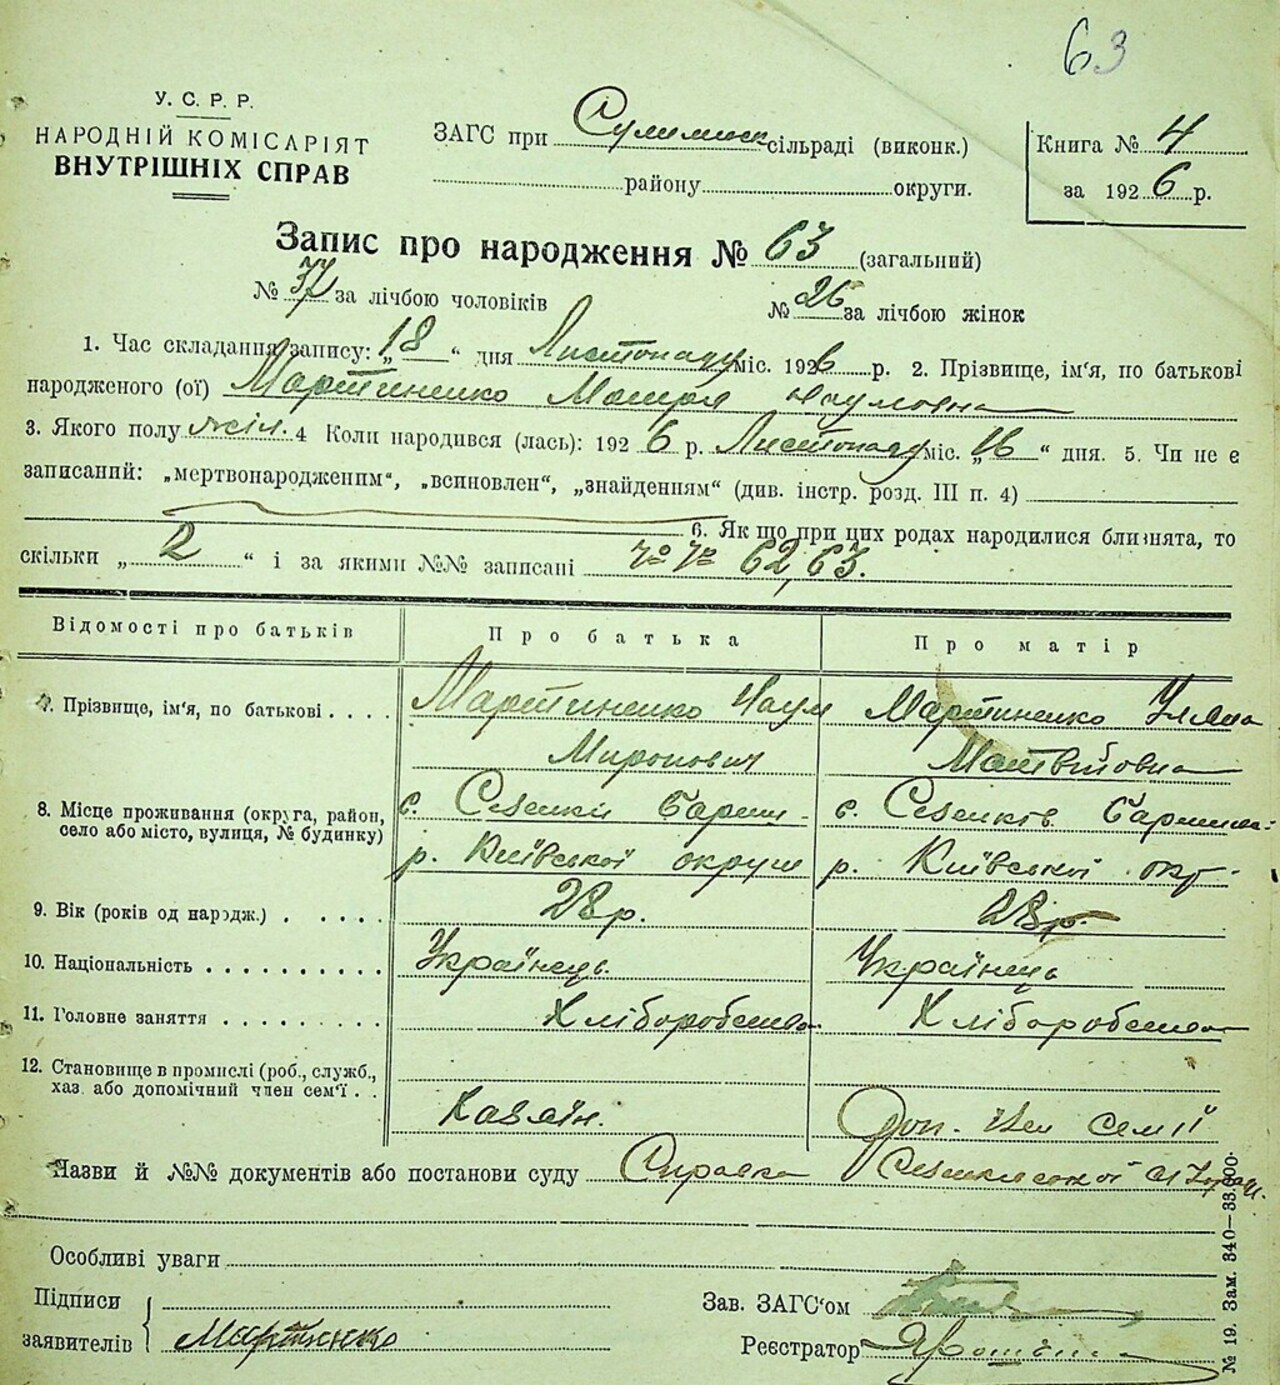 63
У. С. Р. Р.
НАРОДНІЙ КОМІСАРІЯТ
ВНУТРІШНІХ СПРАВ
ЗАГС при Сулимись сільраді (виконк.)
району округи.
Книга № 4
за 1926 р.
Запис про народження № 63 (загальний)
№ 37 за лічбою чоловіків № 26 за лічбою жінок
1. Час складання запису: „18“ дня Листопаду міс. 1926 р. 2. Прізвище, ім‘я, по батькові
народженого (ої) Мартиненко Мотря Наумовна
3. Якого полу жіл. 4 Коли народився (лась): 1926 р. Листопаду міс. „16“ дня. 5. Чи не є
записаний: „мертвонародженим“, „всиновлен“, „знайденням“ (див. інстр. розд. III п. 4)
6. Як що при цих родах народилися близнята, то
скільки „2“ і за якими №№ записані 62, 63.
Відомості про батьків Про батька Про матір
7. Прізвище, ім‘я, по батькові . . . . Мартиненко Наум Мартиненко Уляна
Миронович Матвійовна
8. Місце проживання (округа, район, с. Сезенки Бариш- с. Сезенків Баришів-
село або місто, вулиця, № будинку)
р. Київської округи р. Київської окр.
9. Вік (років од народж.) . . . . . 28 р. 28 р.
10. Національність . . . . . . . . . . Українець. Українець
11. Головне заняття . . . . . . . . . Хліборобство. Хліборобство
12. Становище в промислі (роб., служб.,
хаз. або допомічний член сем‘ї . .
Хазяїн. Доп. член семії
Назви й №№ документів або постанови суду Справка Сезенківської
Особливі уваги
Підписи
заявителів Мартиненко
Зав. ЗАГС‘ом
Реєстратор
№ 19. Зам. 340—33.000.